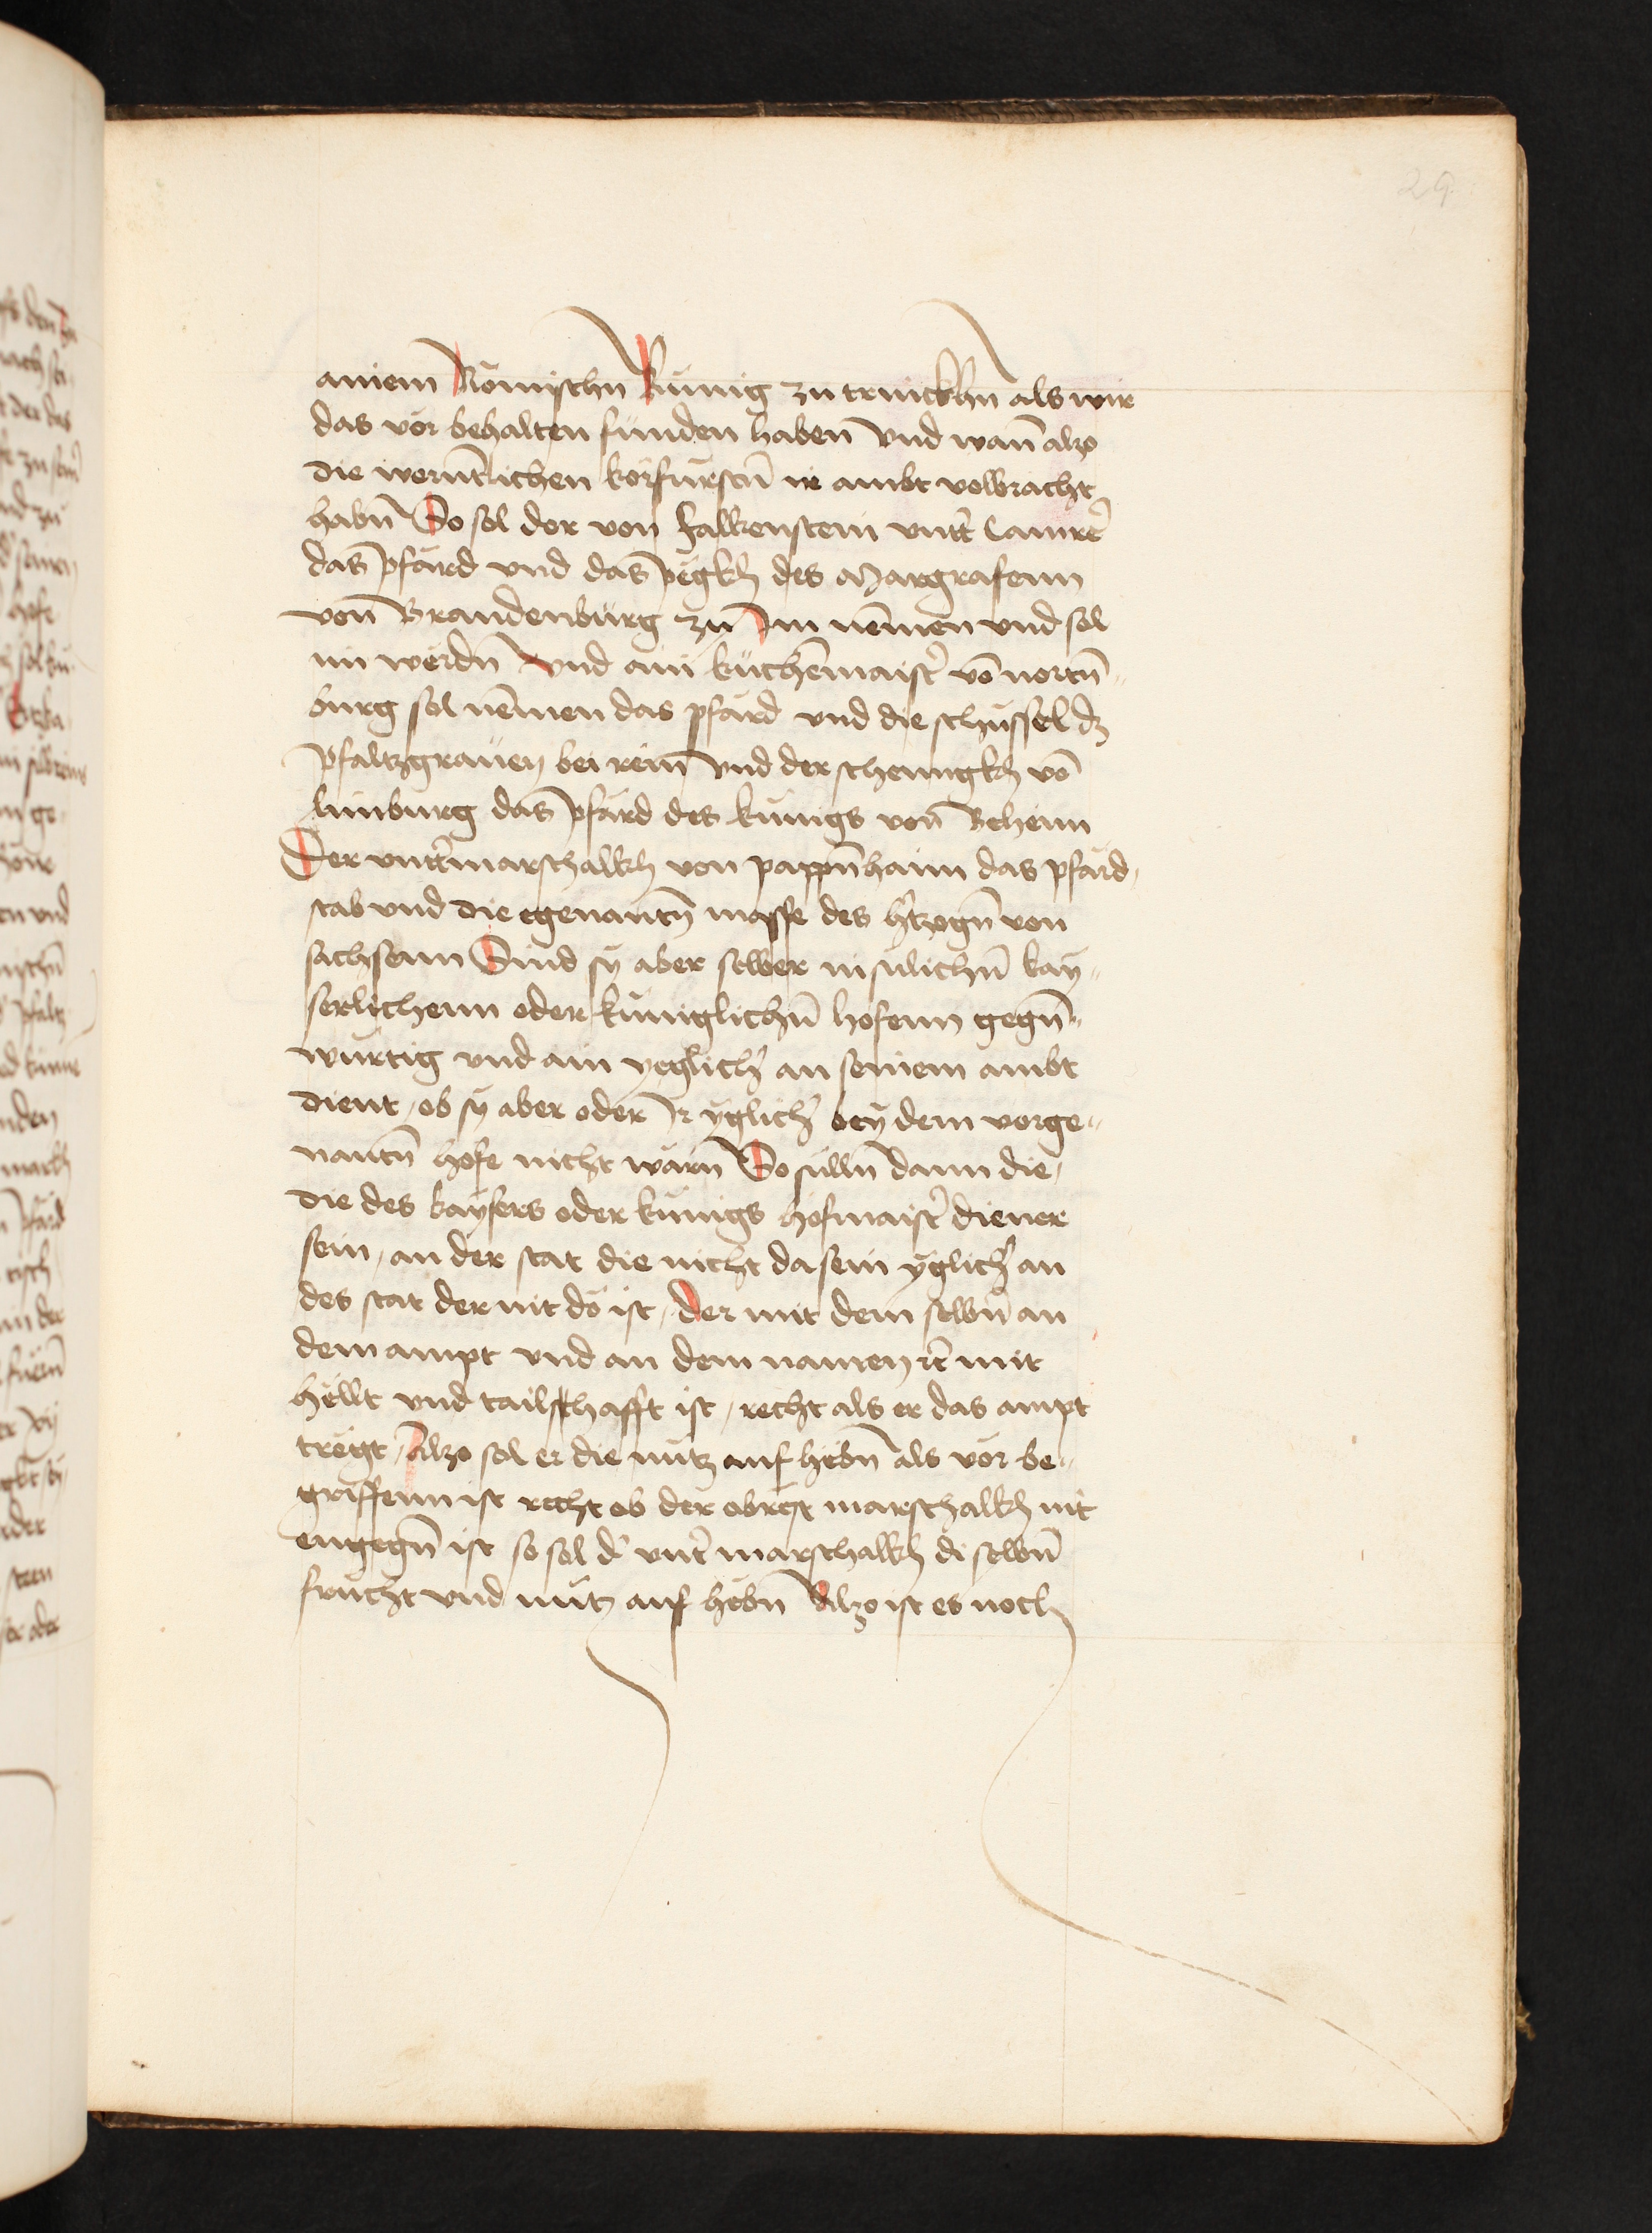 29
ainem Römischn Künig zu trinckhn als wir
das vor behalten funden haben vnd wañ alzo
die werñtlichen körfürstñ ir ambt volbracht
habñ So sol der von falkenstein vntt̃ Camrer̃
das pfärd vnd das pegkh des Margrafenn
von Brandenburg zu Im nemen vnd sol
im werdn Vnd ain küchẽmaist̃ võ nortñ-
burg sol nemen das pfard vnd die schüssel dz
Pfaltzgrauen bei rein vnd der schenngkh võ
limburg das pfärd des kunigs von Beheim
Der vntt̃marschalkh von pappñhaim das pfärd,
stab vnd die egenantñ masse des h̃tzogñ von
sachsenn Sind sy aber selber in sulichñ kay-
serlichenn oder küniglichñ hofenn gegñ-
wurtig vnd ain yeglich̃ an seinem ambt
dient, ob sy aber oder Ir yglich̃ bey dem vorge-
nantñ hofe nicht wärn So sülln dann die,
die des kaysers oder kunigs hofmaist̃ diener
sein, an der stat die nicht da sein yglich̃ an
des stat der nit do ist, der mit dem selbñ an
dem ampt vnd an dem namen rc̃ mit
hellt vnd tailschafft ist, recht als er das ampt
tregt, Alzo sol er die nutz auf hebñ als vor be-
griffenn ist recht ob der obrest marschalkh nit
engegñ ist so sol d̃ vnt̃ marschalkh di selbñ
frucht vnd nutz auf hebn Alzo ist es noch